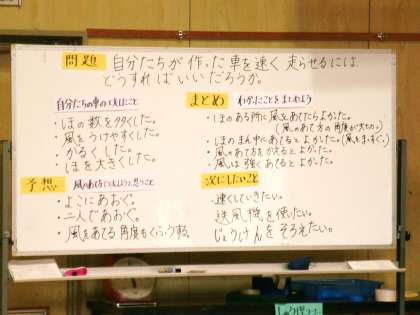 問題 自分たちが作った車を速く走らせるには、
どうすればいいだろうか。
自分たちの車のくふうしたこと
・ほの数を多くした。
・風をうけやすくした。
・かるくした。
・ほを大きくした。
予想 風のあて方でくふうしようと思うこと
・よこにあおぐ。
・二人であおぐ。
・風をあてる角度もくふうする。
まとめ わかったことをまとめよう
・ほのある所に風をあてたらよかった。
(風のあて方の角度が大切。)
・ほのまん中にあてるとよかった。(風をまっすぐ。)
・風のあて方をかえるとよかった。
・風は強くあてるとよかった。
次にしたいこと
・速くしていきたい。
・送風機を使いたい。
・じょうけんをそろえたい。